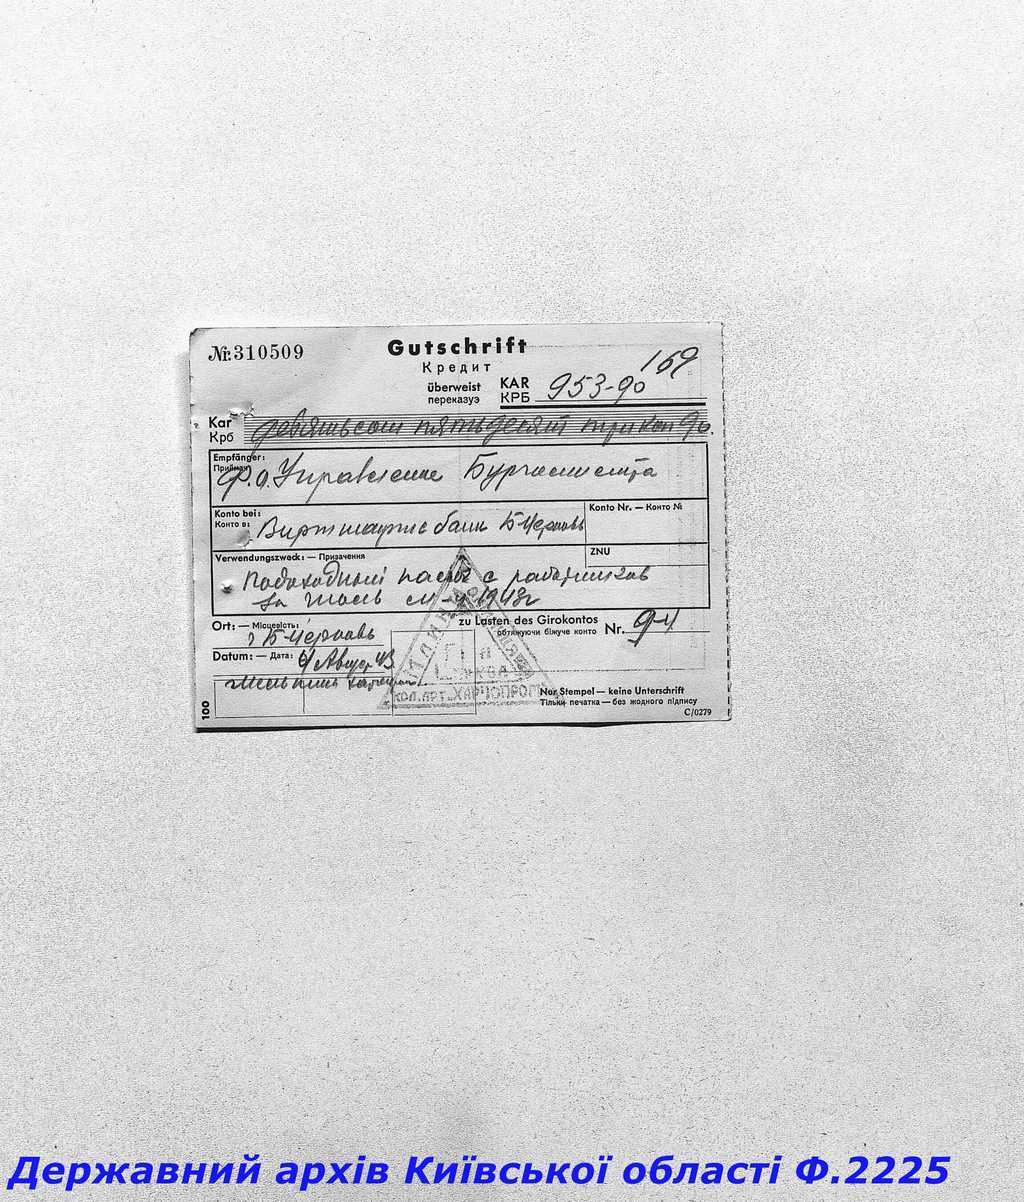 № 310509
Gutschrift
Кредит
169
überweist KAR
переказуэ КРБ 953-90
Kar
Крб девятьсот пятьдесят три коп 90.
Empfänger:
Приймач
Ф.о. Управление Бургомистра
Konto bei:
Конто в: Виртшафтс банк Б-Церковь
Konto Nr. — Конто №
ZNU
Verwendungszweck: — Призачення
Подоходный с работников
за м-ц 1943г
Ort: — Місцевість:
г Б-Церковь
zu Lasten des Girokontos
обтяжуючи біжуче конто Nr. 94
Datum: — Дата: 4 Август 43
МЛИН
КОЛ.АРТ. ХАРЧОПРОМ
Nor Stempel — keine Unterschrift
Тільки печатка — без жодного підпису
C/0279
100
Державний архів Київської області Ф.2225